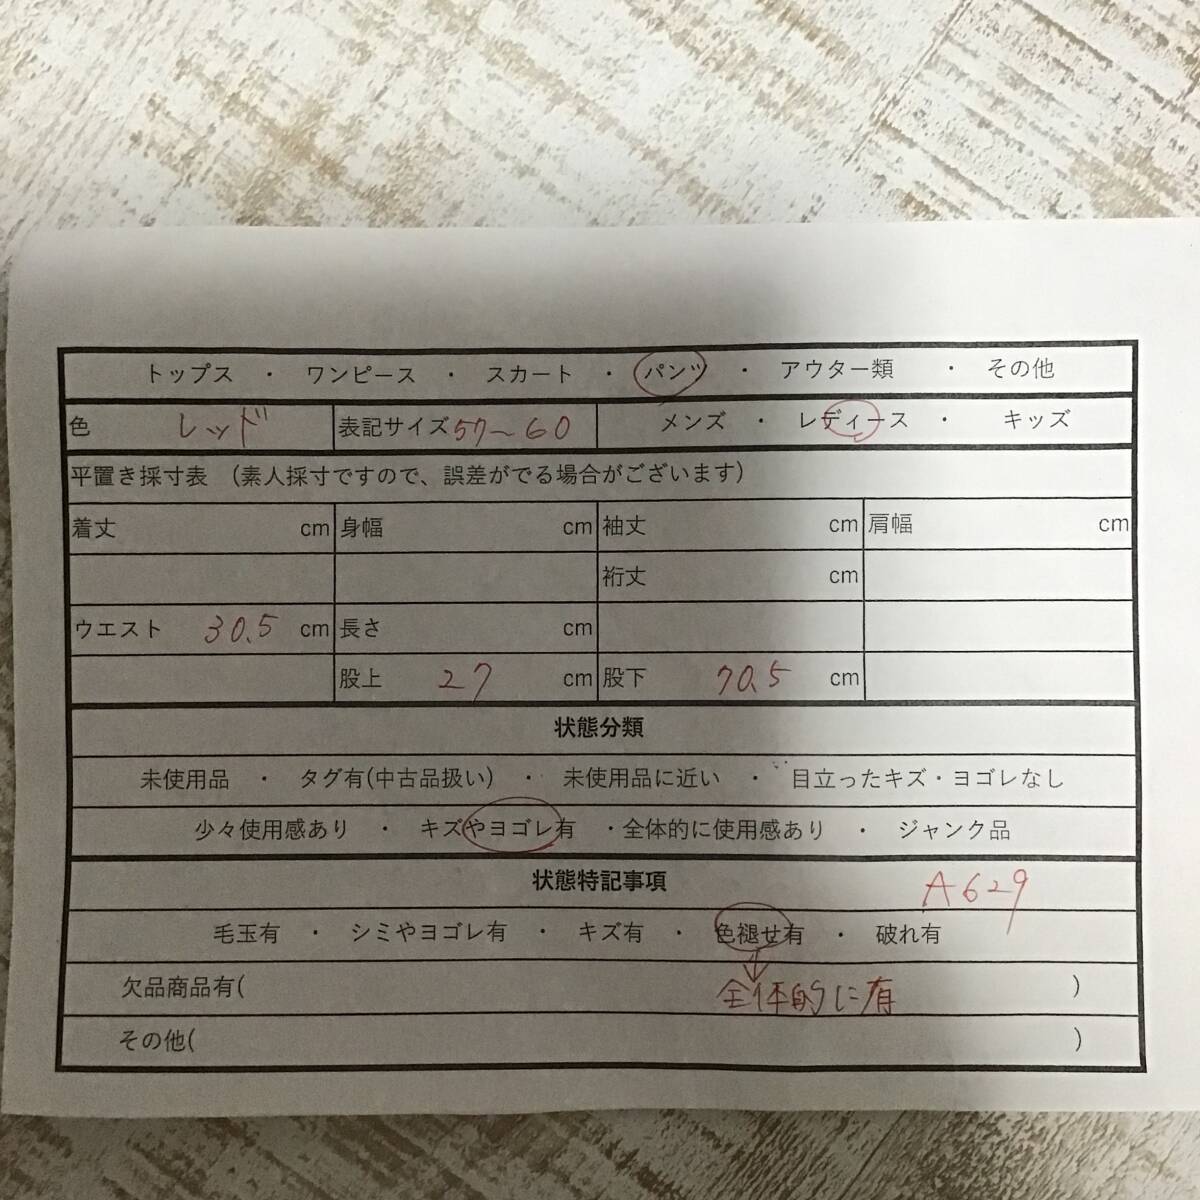 トップス ・ ワンピース ・ スカート ・ パンツ ・ アウター類 ・ その他
色 レッド 表記サイズ 57〜60 メンズ ・ レディース ・ キッズ
平置き採寸表 (素人採寸ですので、誤差がでる場合がございます)
着丈 cm 身幅 cm 袖丈 cm 肩幅 cm
裄丈 cm
ウエスト 30.5 cm 長さ cm
股上 27 cm 股下 70.5 cm
状態分類
未使用品 ・ タグ有(中古品扱い) ・ 未使用品に近い ・ 目立ったキズ・ヨゴレなし
少々使用感あり ・ キズやヨゴレ有 ・全体的に使用感あり ・ ジャンク品
状態特記事項 A629
毛玉有 ・ シミやヨゴレ有 ・ キズ有 ・ 色褪せ有 ・ 破れ有
欠品商品有( 全体的に有 )
その他( )